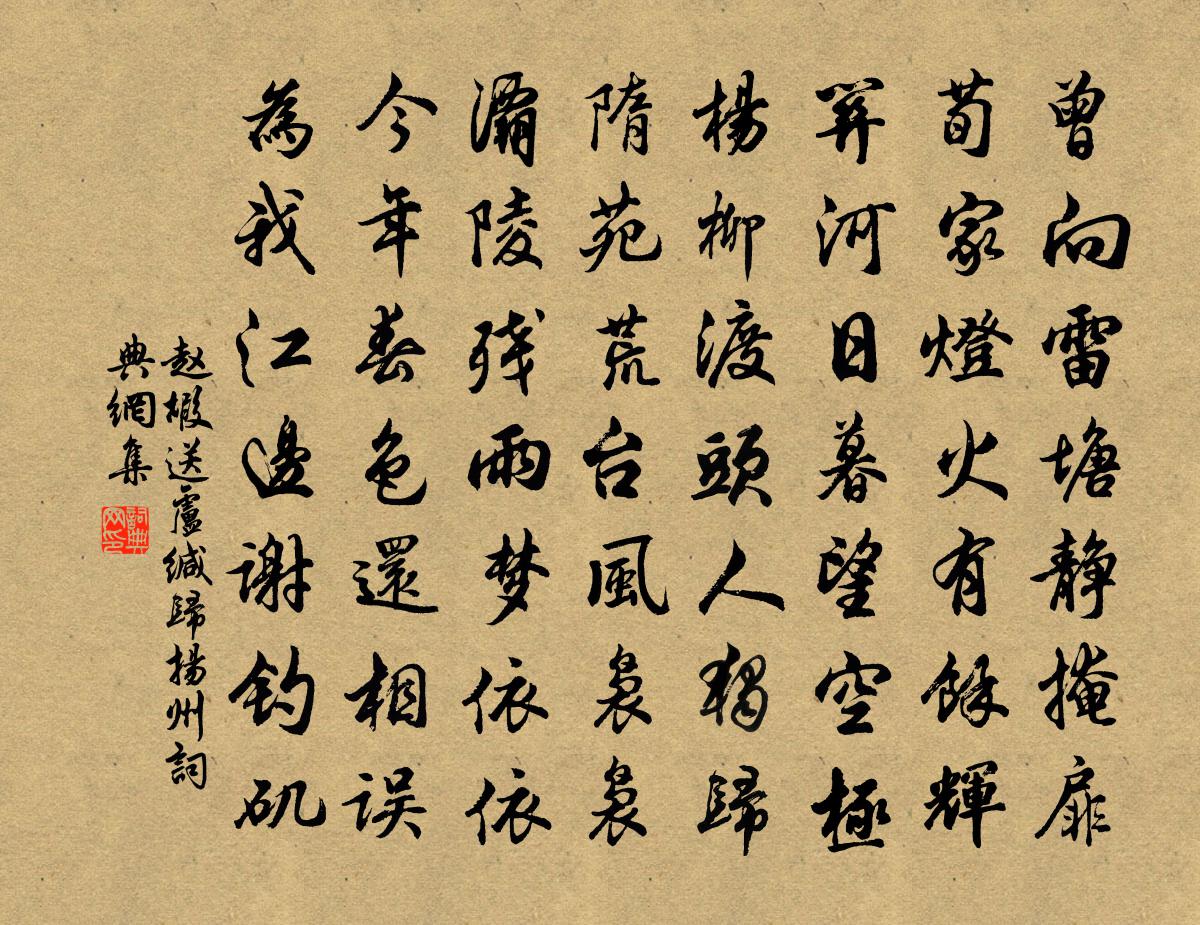 曾向雷塘静掩扉
荀家燈火有餘輝
關河日暮望空極
楊柳渡頭人獨歸
隋苑荒台風裊裊
灞陵残雨梦依依
今年春色還相误
為我江邊謝釣矶
赵嘏送盧缄歸揚州詞
典網集
詞典网印